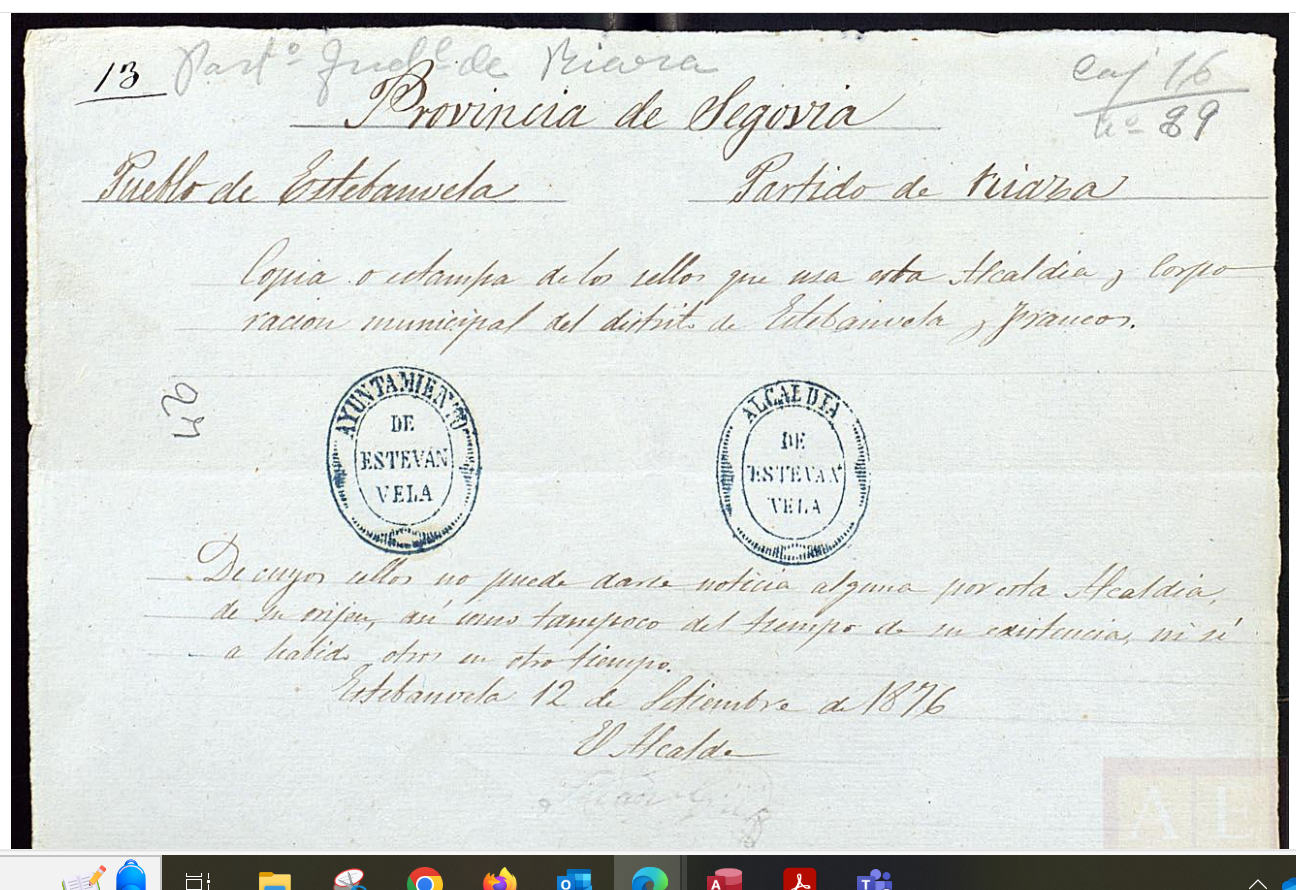 13 Part.º Jud.l de Riaza
Caj 16
nº 89
Provincia de Segovia
Pueblo de Estebanvela
Partido de Riaza
Copia o estampa de los sellos que usa esta Alcaldia y Corpo
racion municipal del distrito de Estebanvela y Francos.
24
AYUNTAMIENTO
DE
ESTEVÁN
VELA
ALCALDIA
DE
ESTEVAN
VELA
De cuyos sellos no puede darse noticia alguna por esta Alcaldia,
de su orijen, así como tampoco del tiempo de su existencia, ni si
a habido otros en otro tiempo.
Estebanvela 12 de Setiembre de 1876
El Alcalde
A E